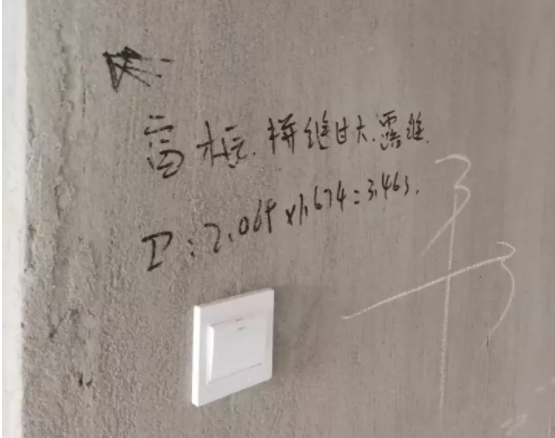 窗框.拼缝过大.露缝.
P:2.069×1.674=3.463.